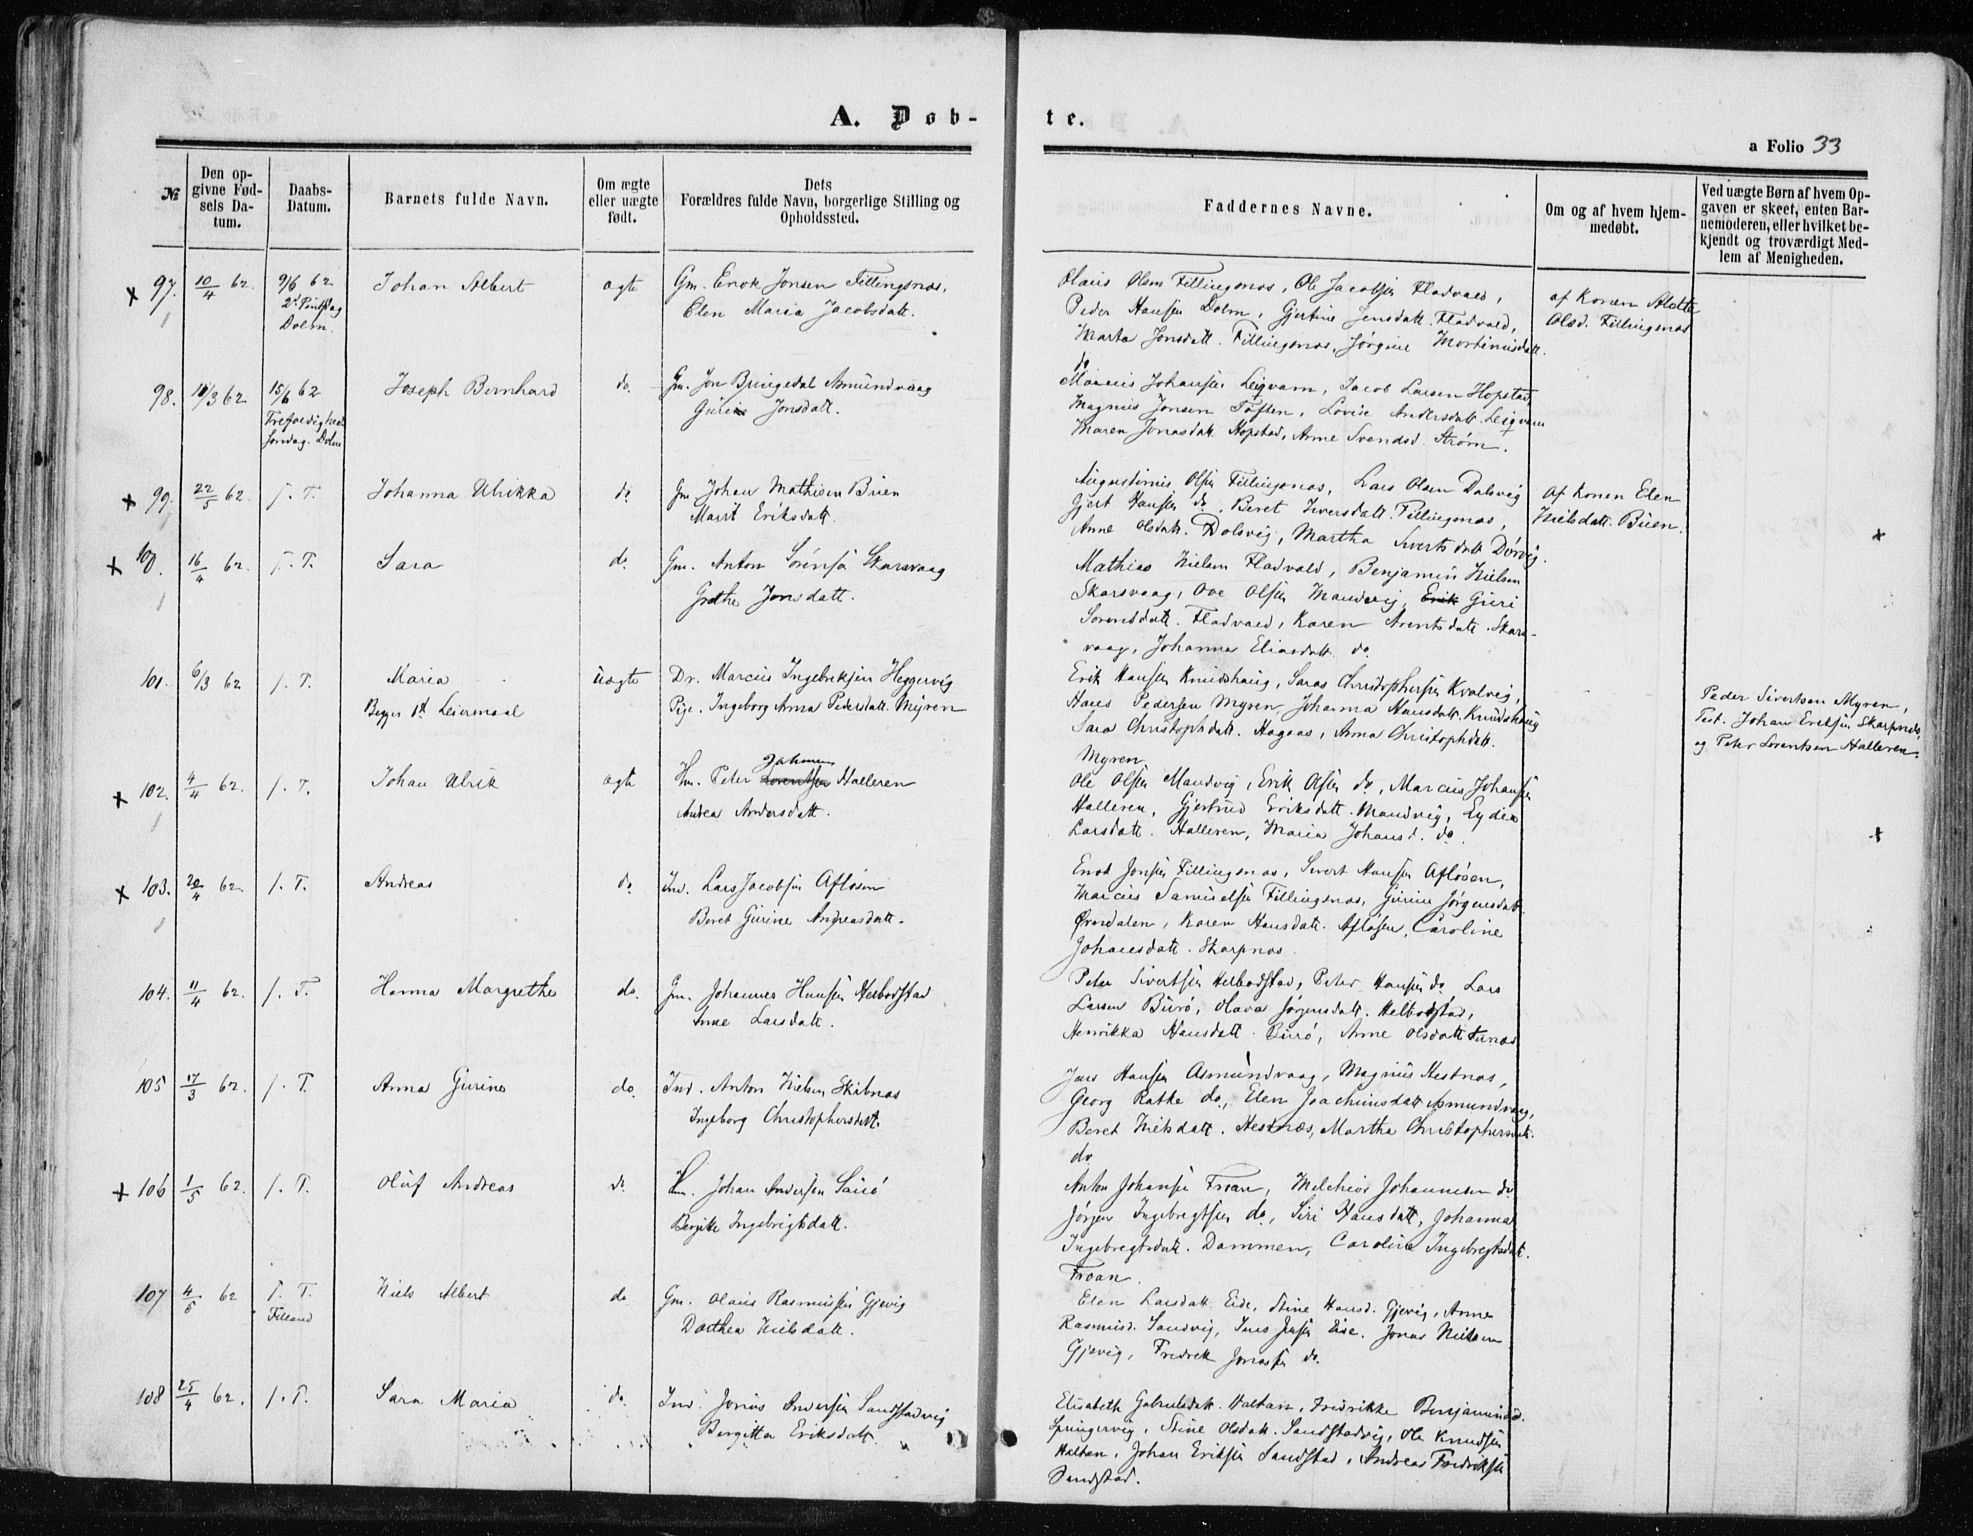 A. Døb-
te.
a Folio 33
№
Den op-
givne Fød-
sels Da-
tum.
Daabs-
Datum.
Barnets fulde Navn.
Om ægte
eller uægte
født.
Dets
Forældres fulde Navn, borgerlige Stilling og
Opholdssted.
Faddernes Navne.
Om og af hvem hjem-
medøbt.
Ved uægte Børn af hvem Op-
gaven er skeet, enten Bar-
nemoderen, eller hvilket be-
kjendt og troværdigt Med-
lem af Menigheden.
x 97. 10/4 62. 9/6 62
2d Pintsdag
Dolm.
Johan Albert
ægte
Gm. Enok Jonsen Fillingsnæs,
Elen Maria Jacobsdatt.
Olaus Olsen Fillingsnæs, Ole Jacobsen Fladvald,
Peder Hansen Dolm, Gjertine Jensdatt. Fladvald,
Marta Jonsdatt. Fillingsnæs, Jørgine Mortinusdatt.
do
af Konen
Olsd. Fillingsnæs
98. 10/3 62 15/6 62
Trefoldigheds
Søndag. Dolm
Joseph Bernhard
do.
Gm. Jon Bringedal Asmundvaag
Gurine Jonsdatt.
Marcus Johansen Leiqvam, Jacob Larsen Hopstad
Magnus Jonsen Toften, Lovise Andersdatt. Leiqvam
Maren Jonasdatt. Hopstad, Anne Svendsd. Strøm.
x 99. 22/5 62. f. T.
Johanna Ulrikka
do
Gm. Johan Mathisen Buen
Marit Eriksdatt.
Augustinus Olsen Fillingsnæs, Lars Olsen Dolsvig
Gjert Hansen do, Beret Iversdatt. Fillingsnæs,
Anne Olsdatt. Dolsvig, Martha Sivertsdatt Dørvig.
Af Konen Elen
Nielsdatt. Buen.
x 100. 16/4 62. f. T.
Sara
do.
Gm. Anton Sørensen Skarsvaag
Grethe Jonsdatt.
Mathias Nielsen Fladvald, Benjamin Nielsen
Skarsvaag, Ove Olsen Mandvig, Erik Guri
Sorensdatt. Fladvald, Karen Arentsdatt. Skars-
vaag, Johanna Eliasdatt. do.
101. 6/3 62 f. T.
Maria
Begges 1st Leiermaal
uægte
Dr. Marcus Ingebriktsen Heggervig
Pige. Ingeborg Anna Pedersdatt. Myren
Erik Hansen Knudshaug, Saras Christophersen Kvalvig,
Hans Pedersen Myren, Johanna Hansdatt. Knudshaug
Sara Christophdatt. Hagaas, Anna Christophdatt.
Myren
Peder Sivertsen Myren,
Test. Johan Eriksen Skarpnes
og Peter Lorentsen Halleren.
x 102. 4/4 62. f. T.
Johan Ulrik
ægte
Hm. Peter Lorentsen Halleren
Andrea Andersdatt.
Ole Olsen Mandvig, Erik Olsen do, Marcus Johansen
Halleren, Gjertrud Eriksdatt. Mandvig,
Larsdatt. Halleren, Maria Johansd. do.
x 103. 20/4 62. f. T.
Andreas
do
Ind. Lars Jacobsen Afløsen
Beret Gurine Andreasdatt.
Enok Jonsen Fillingsnæs, Sivert Hansen Afløsen,
Marcus Samuelsen Fillingsnæs, Gurine Jørgensdatt.
Ørndalen, Karen Hansdatt. Afløsen, Caroline
Johansdatt. Skarpnæs.
104. 11/4 62. f. T.
Hanna Margrethe
do.
Gm. Johannes Hansen Helbostad
Anne Larsdatt.
Peter Sivertsen Helbostad, Peter Hansen do Lars
Larsen Burø, Olava Jørgensdatt. Helbostad,
Henrikka Hansdatt. Burø, Anne Olsdatt
105 17/3 62. f. T.
Anna Gurine
do.
Ind. Anton Nielsen Skibnæs
Ingeborg Christophersdatt.
Jens Hansen Asmundvaag, Magnus Hestnæs,
Georg Ratke do., Elen Joachimsdatt Asmundvaag,
Beret Nielsdatt. Hestnæs, Martha Christophersdatt.
do
x 106 1/5 62. f. T.
Oluf Andreas
do.
Hm. Johan Andersen Saurø
Bergitte Ingebrigtsdatt.
Anton Johansen Froan, Melchior Johannesen do
Jørgen Ingebregtsen do, Siri Hansdatt, Johanna
Ingebregtsdatt. Dammen, Caroline Ingebregtsdatt.
Froan.
107 4/5 62 f. T.
Filland
Niels Albert
do
Gm. Olaus Rasmussen Gjevig
Dorthea Nielsdatt.
Elen Larsdatt. Eide, Stine Hansd. Gjevig, Anne
Rasmusd. Sandvig, Jens Jensen Eide. Jonas Nielsen
Gjevig, Fredrik Jonassen do.
108 25/4 62. f. T.
Sara Maria
do
Ind. Jonas Andersen Sandstadvig
Bergitta Eriksdatt.
Elisabeth Gabrielsdatt. Haltan, Fredrikke Benjaminsd.
Springervig, Stine Olsdatt. Sandstadvig, Ole Knudsen
Haltan, Johan Eriksen Sandstad, Andreas Fredriksen
Sandstad.